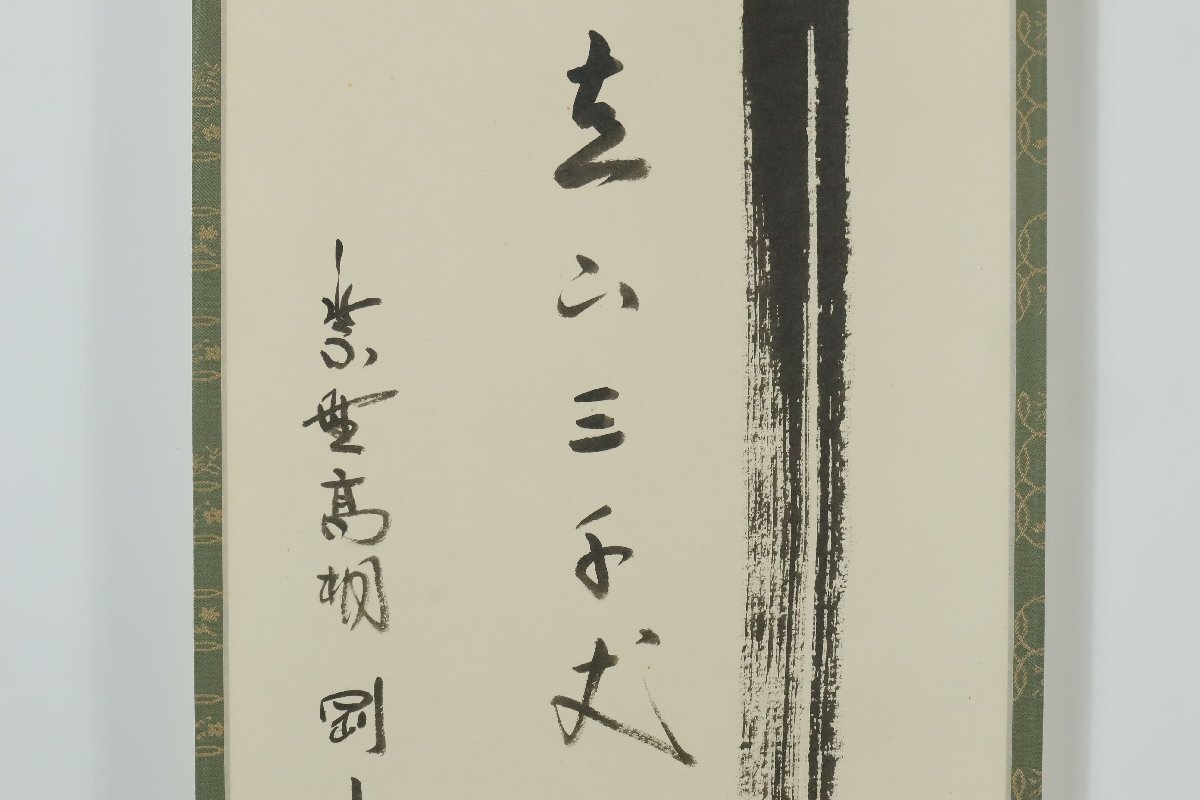 直下三千丈
紫野高桐 剛